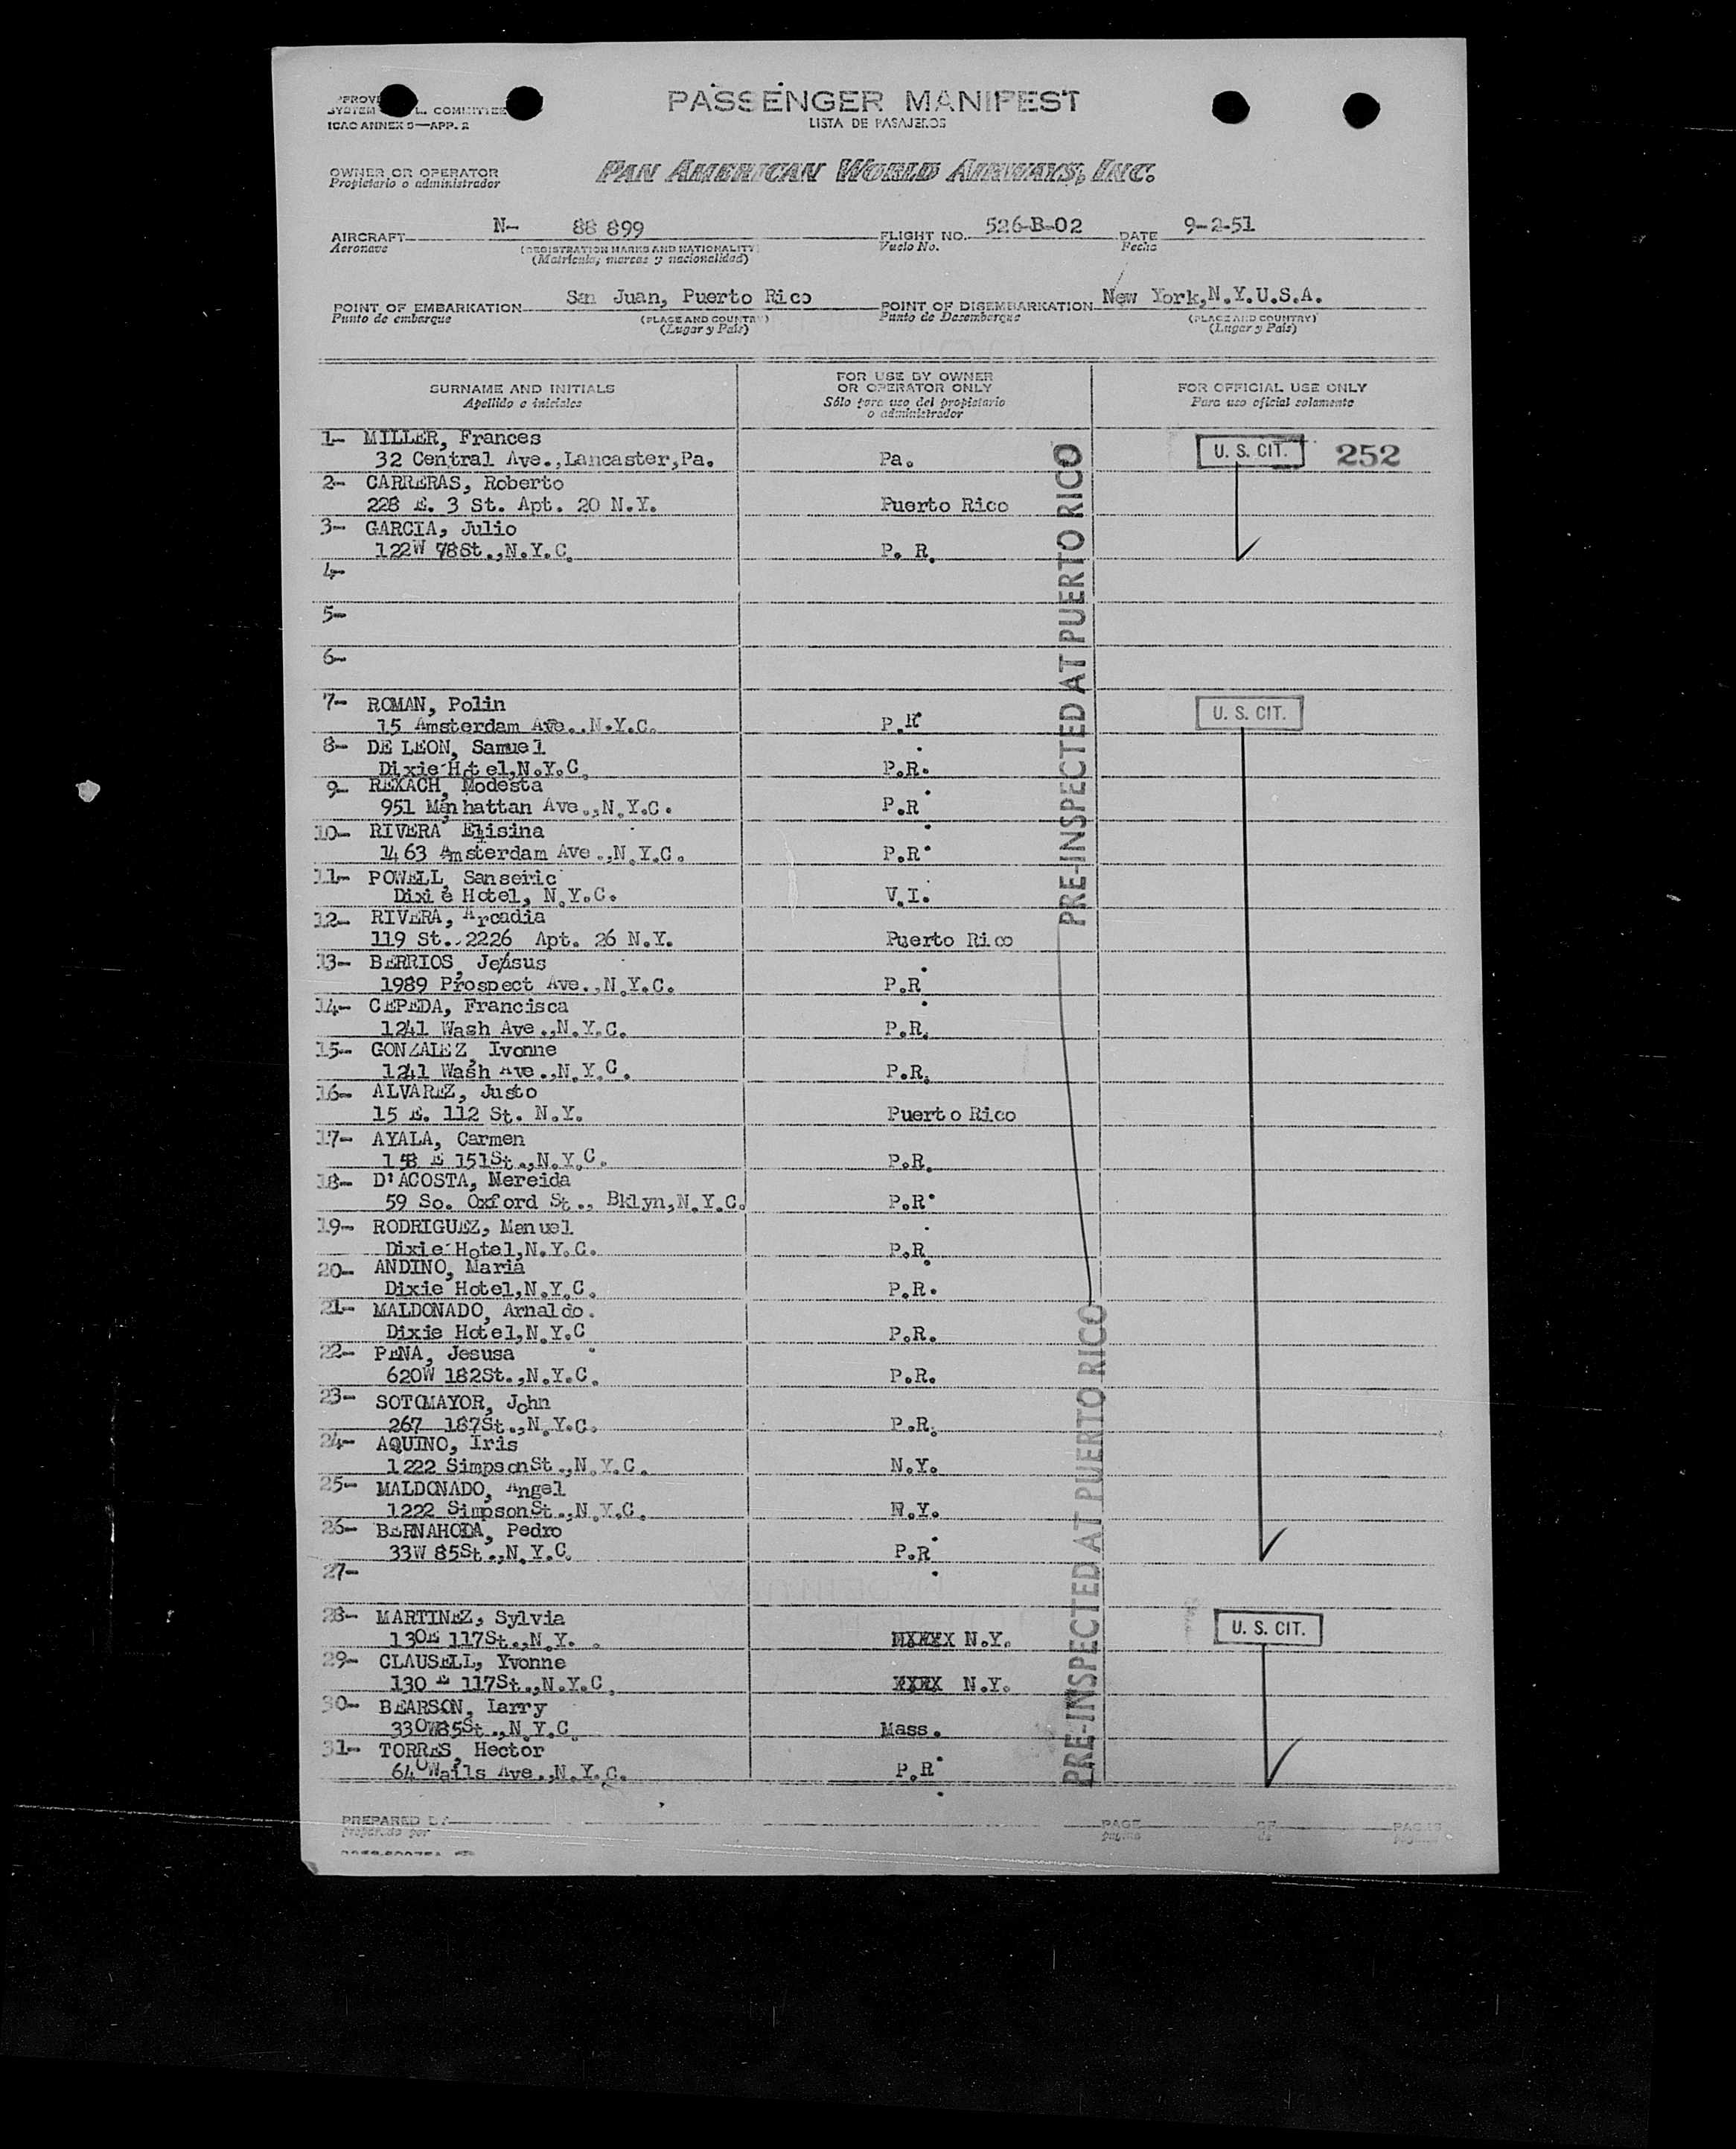 SYSTEM COMMITTEE
ICAO ANNEX 9—APP. 2
PASSENGER MANIFEST
LISTA DE PASAJEROS
OWNER OR OPERATOR
Propietario o administrador
PAN AMERICAN WORLD AIRWAYS, INC.
AIRCRAFT N- 88 899 FLIGHT NO. 526-B-02 DATE 9-2-51
Aeronave (REGISTRATION MARKS AND NATIONALITY) Vuelo No. Fecha
(Matricula, marcas y nacionalidad)
POINT OF EMBARKATION San Juan, Puerto Rico POINT OF DISEMBARKATION New York,N.Y.U.S.A.
Punto de embarque (PLACE AND COUNTRY) Punto de Desembarque (PLACE AND COUNTRY)
(Lugar y País) (Lugar y País)
SURNAME AND INITIALS
Apellido e iniciales
FOR USE BY OWNER
OR OPERATOR ONLY
Sólo para uso del propietario
o administrador
FOR OFFICIAL USE ONLY
Para uso oficial solamente
1- MILLER, Frances
32 Central Ave.,Lancaster,Pa. Pa. U. S. CIT. 252
2- CARRERAS, Roberto
228 E. 3 St. Apt. 20 N.Y. Puerto Rico
3- GARCIA, Julio
122W 78St.,N.Y.C. P. R.
4-
5-
6-
7- ROMAN, Polin U. S. CIT.
15 Amsterdam Ave..N.Y.C. P.R.
8- DE LEON, Samuel
Dixie Hotel,N.Y.C. P.R.
9- REXACH, Modesta
951 Manhattan Ave.,N.Y.C. P.R.
10- RIVERA, Elisina
1463 Amsterdam Ave.,N.Y.C. P.R.
11- POWELL, Sanseric
Dixie Hotel, N.Y.C. V.I.
12- RIVERA, Arcadia
119 St. 2226 Apt. 26 N.Y. Puerto Rico
13- BERRIOS, Jesus
1989 Prospect Ave.,N.Y.C. P.R.
14- CEPEDA, Francisca
1241 Wash Ave.,N.Y.C. P.R.
15- GONZALEZ, Ivonne
1241 Wash Ave.,N.Y.C. P.R.
16- ALVAREZ, Justo
15 E. 112 St. N.Y. Puerto Rico
17- AYALA, Carmen
E 151St.,N.Y.C. P.R.
18- D'ACOSTA, Nereida
59 So. Oxford St., Bklyn,N.Y.C. P.R.
19- RODRIGUEZ, Manuel
Dixie Hotel,N.Y.C. P.R.
20- ANDINO, Maria
Dixie Hotel,N.Y.C. P.R.
21- MALDONADO, Arnaldo.
Dixie Hotel,N.Y.C P.R.
22- PENA, Jesusa
620W 182St.,N.Y.C. P.R.
23- SOTOMAYOR, John
267 187St.,N.Y.C. P.R.
24- AQUINO, Iris
1222 SimpsonSt.,N.Y.C. N.Y.
25- MALDONADO, Angel
1222 SimpsonSt.,N.Y.C. N.Y.
26- BERNAHODA, Pedro
33W 85St.,N.Y.C. P.R.
27-
28- MARTINEZ, Sylvia U. S. CIT.
130E 117St.,N.Y. N.Y.
29- CLAUSELL, Yvonne
130 E 117St.,N.Y.C. N.Y.
30- BEARSON, Larry
330W85St.,N.Y.C. Mass.
31- TORRES, Hector
640Wails Ave.,N.Y.C. P.R.
PRE-INSPECTED AT PUERTO RICO
PRE-INSPECTED AT PUERTO RICO
PREPARED BY PAGE OF PAGES
preparado por página de páginas